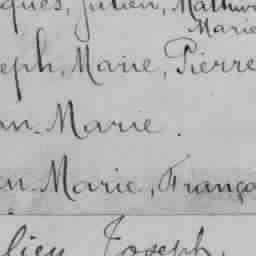 ques, Julien, Mathur
Marie
eph, Marie, Pierre
an-Marie.
en Marie, Franço
lien Joseph.